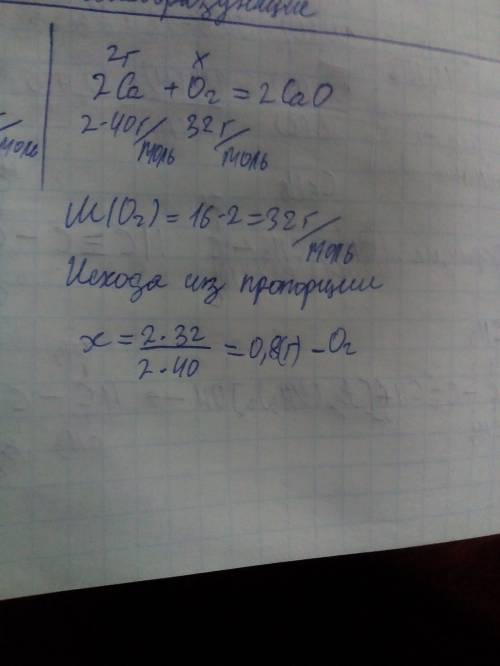 2г х
2Ca + O₂ = 2CaO
2·40г/моль 32г/моль
M(O₂) = 16·2 = 32г/моль
Исходя из пропорции
х = 2·32 / 2·40 = 0,8(г) – O₂